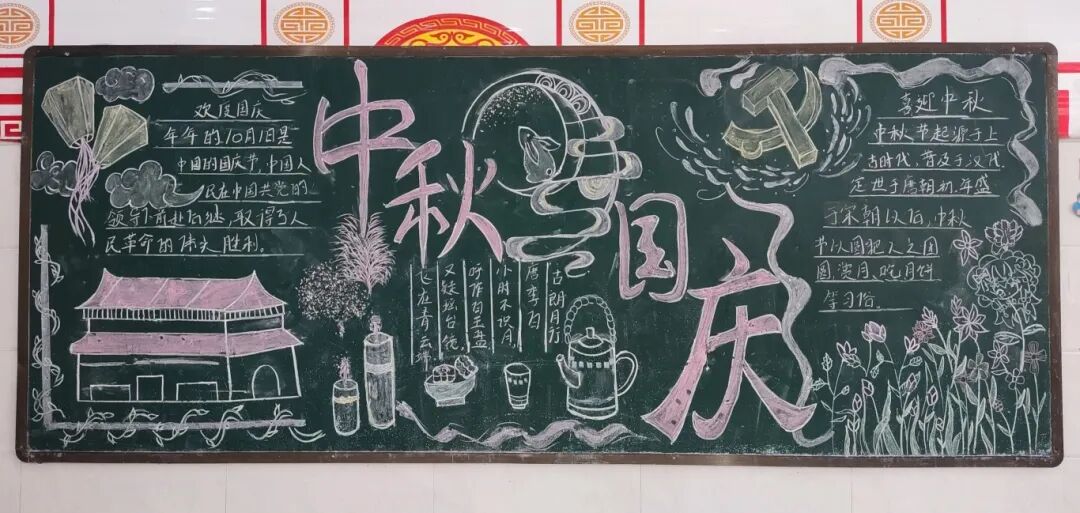 欢度国庆
年年的10月1日是
中国的国庆节,中国人
民在中国共党的
领导下前赴后继,取得了人
民革命的伟大胜利。
中秋
国庆
古朗月行
唐李白
小时不识月,
呼作白玉盘
又疑瑶台镜
飞在青云端
喜迎中秋
中秋节起源于上
古时代,普及于汉代
定世于唐朝初年盛
于宋朝以后,中秋
节以圆犯人之团
圆,赏月,吃月饼
等习俗